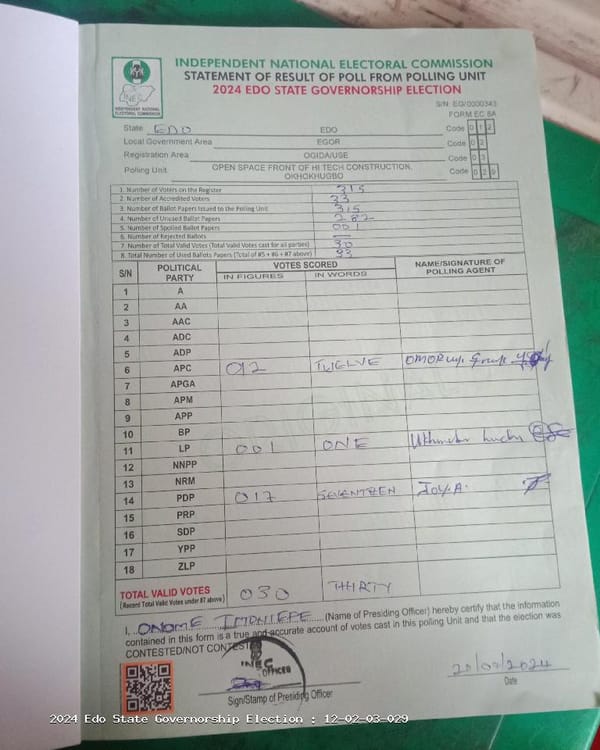 INDEPENDENT NATIONAL ELECTORAL COMMISSION
STATEMENT OF RESULT OF POLL FROM POLLING UNIT
2024 EDO STATE GOVERNORSHIP ELECTION
INEC
INDEPENDENT NATIONAL ELECTORAL COMMISSION
S/N: EG/0000343
FORM EC 8A
State EDO EDO Code 0 1 2
Local Government Area EGOR Code 0 2
Registration Area OGIDA/USE Code 0 3
Polling Unit OPEN SPACE FRONT OF HI TECH CONSTRUCTION, OKHOKHUGBO Code 0 2 9
1. Number of Voters on the Register 315
2. Number of Accredited Voters 33
3. Number of Ballot Papers Issued to the Polling Unit 315
4. Number of Unused Ballot Papers 282
5. Number of Spoiled Ballot Papers 001
6. Number of Rejected Ballots —
7. Number of Total Valid Votes (Total Valid Votes cast for all parties) 30
8. Total Number of Used Ballots Papers (Total of #5 + #6 + #7 above) 33
S/N POLITICAL PARTY VOTES SCORED NAME/SIGNATURE OF POLLING AGENT
IN FIGURES IN WORDS
1 A
2 AA
3 AAC
4 ADC
5 ADP
6 APC 012 TWELVE
7 APGA
8 APM
9 APP
10 BP
11 LP 001 ONE
12 NNPP
13 NRM
14 PDP 017 SEVENTEEN JOY.A.
15 PRP
16 SDP
17 YPP
18 ZLP
TOTAL VALID VOTES 030 THIRTY
(Record Total Valid Votes under #7 above)
I, ONOME IMONIEPE (Name of Presiding Officer) hereby certify that the information
contained in this form is a true and accurate account of votes cast in this polling Unit and that the election was
CONTESTED/NOT CONTESTED
INEC
OFFICER
Sign/Stamp of Presiding Officer
21/09/2024
Date
2024 Edo State Governorship Election : 12-02-03-029